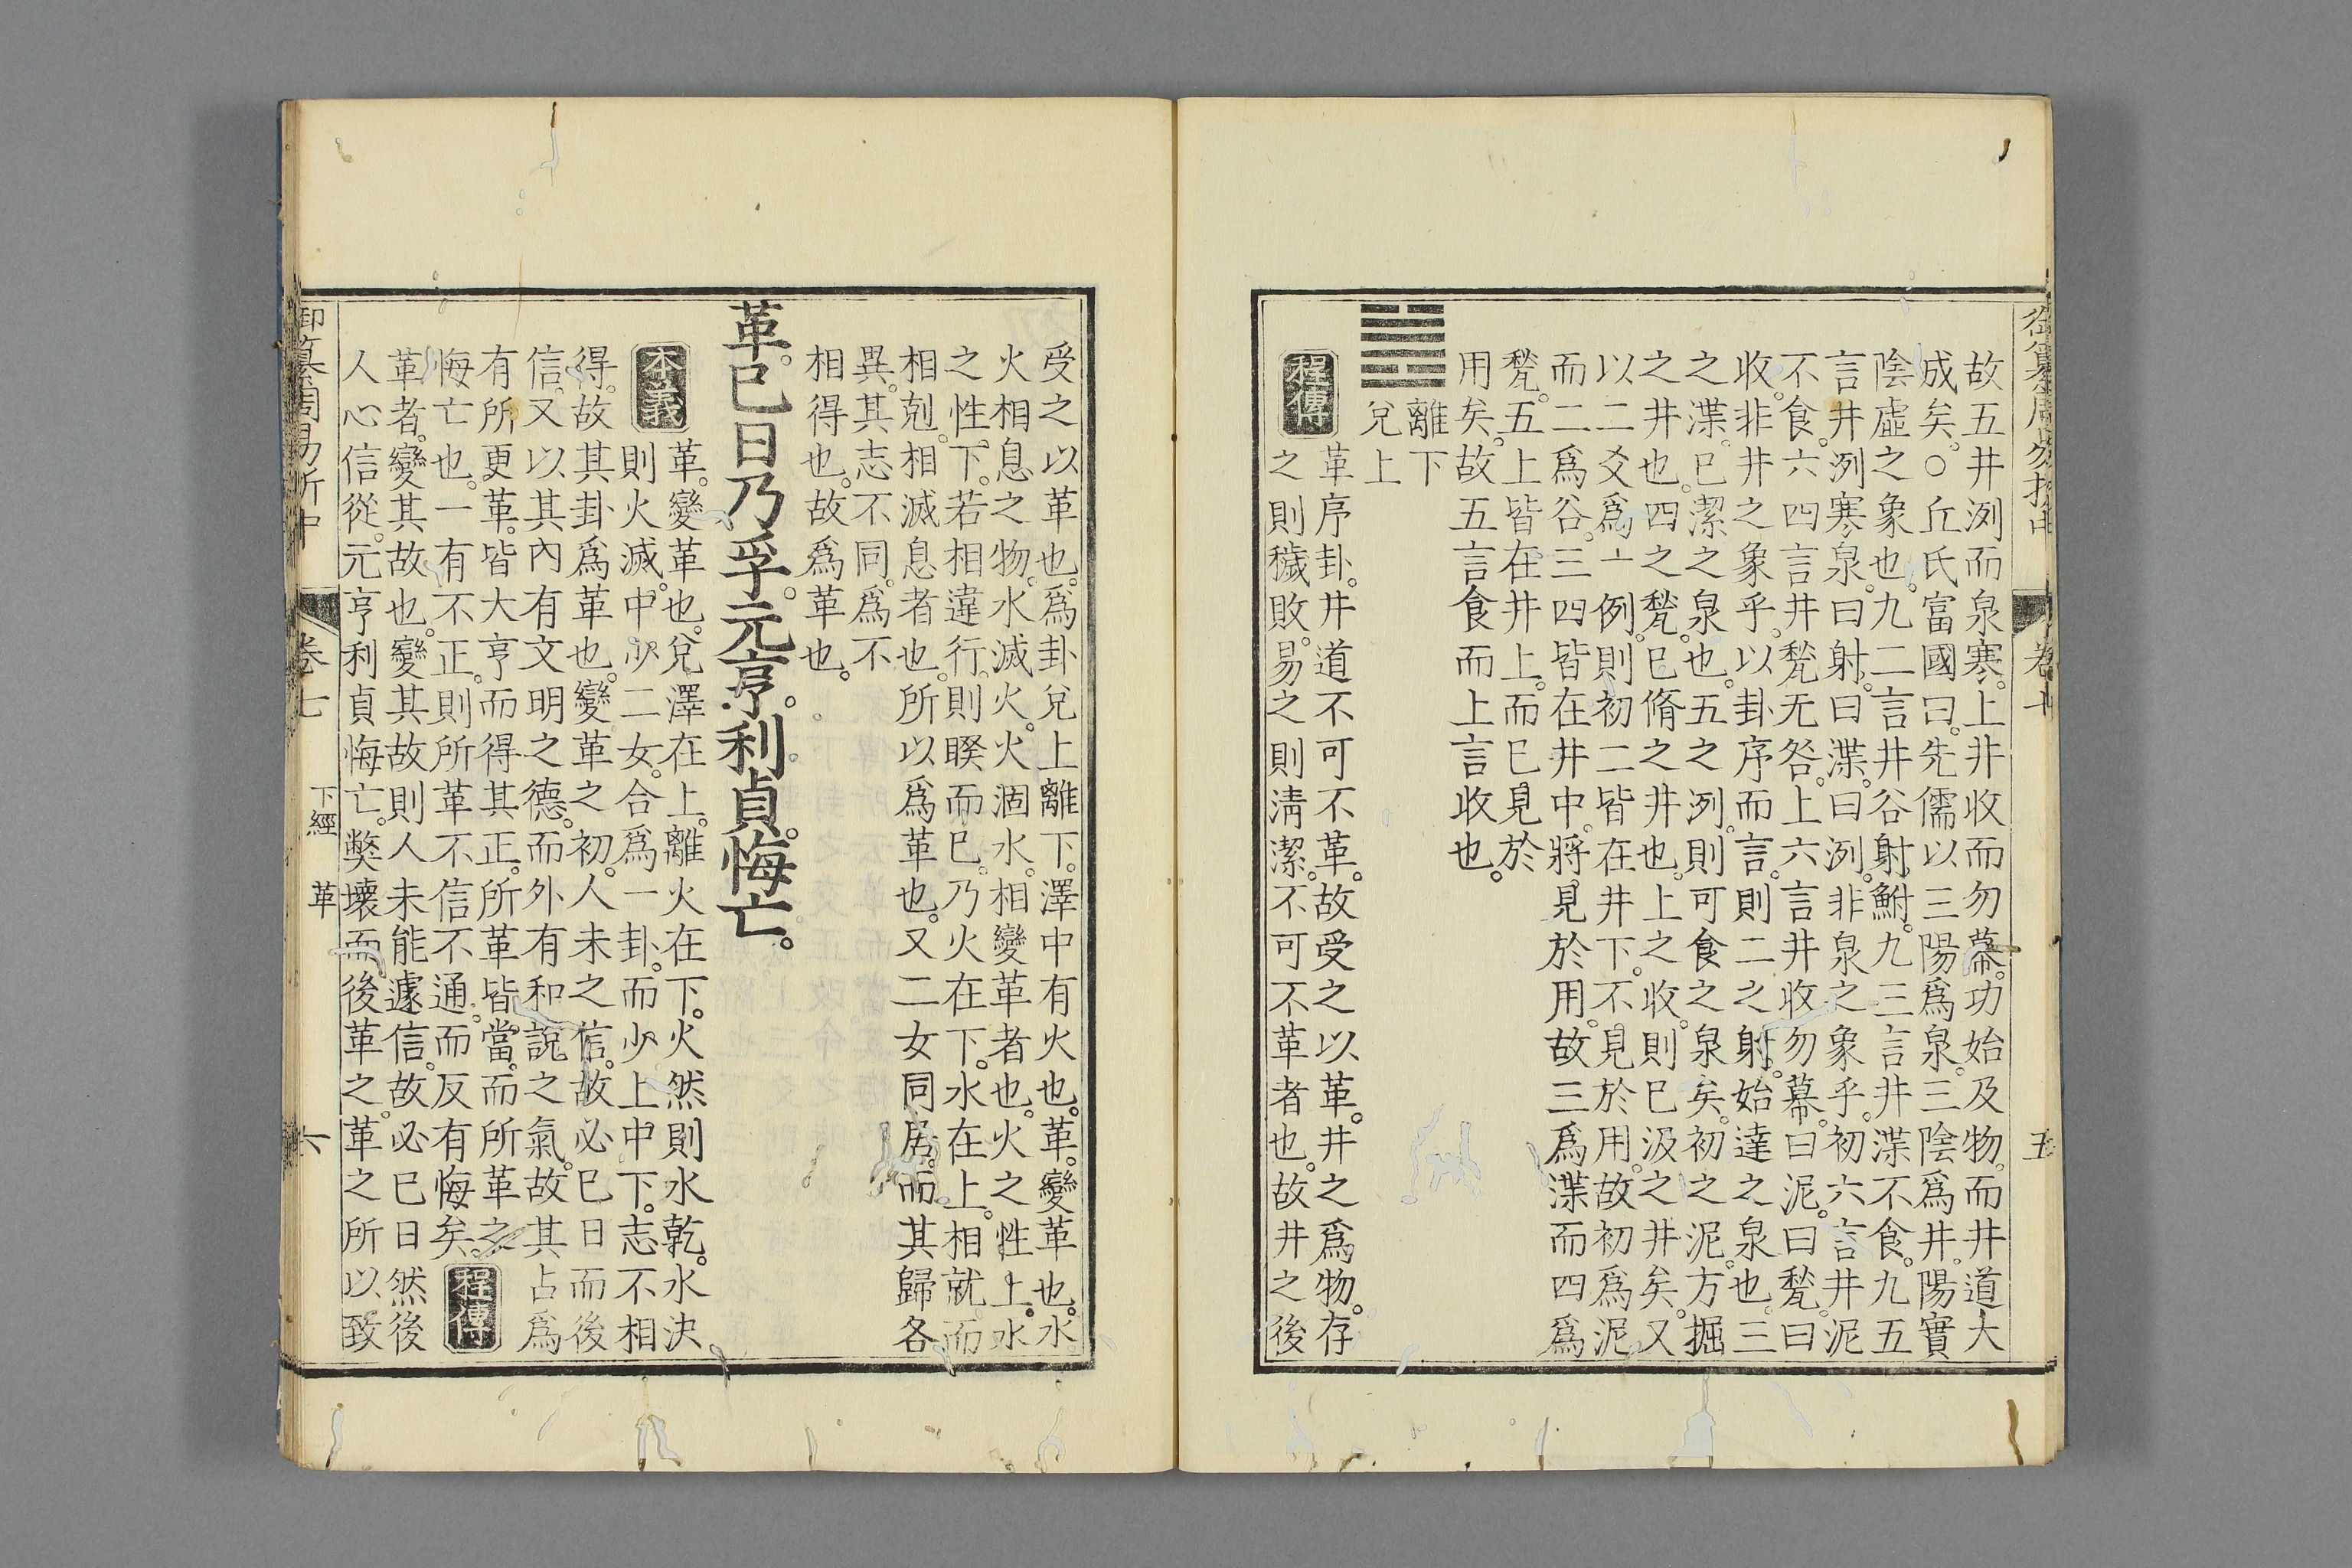 御纂周易折中 卷七 五
故五井洌而泉寒。上井收而勿幕。功始及物。而井道大
成矣。○丘氏富國曰。先儒以三陽爲泉。三陰爲井。陽實
陰虛之象也。九二言井谷射鮒。九三言井渫不食。九五
言井洌寒泉。曰射。曰渫。曰洌。非泉之象乎。初六言井泥
不食。六四言井甃无咎。上六言井收勿幕。曰泥。曰甃。曰
收。非井之象乎。以卦序而言。則二之射。始達之泉也。三
之渫。已潔之泉也。五之洌。則可食之泉矣。初之泥。方掘
之井也。四之甃。已脩之井也。上之收。則已汲之井矣。又
以二爻爲一例。則初二皆在井下。不見於用。故初爲泥
而二爲谷。三四皆在井中。將見於用。故三爲渫而四爲
甃。五上皆在井上。而已見於
用矣。故五言食而上言收也。
離下
兌上
程傳
革序卦。井道不可不革。故受之以革。井之爲物。存
之則穢敗。易之則清潔。不可不革者也。故井之後
受之以革也。爲卦兌上離下。澤中有火也。革。變革也。水
火相息之物。水滅火。火涸水。相變革者也。火之性上。水
之性下。若相違行。則睽而已。乃火在下。水在上。相就而
相剋。相滅息者也。所以爲革也。又二女同居。而其歸各
異。其志不同。爲不
相得也。故爲革也。
革。已日乃孚。元亨。利貞。悔亡。
本義
革。變革也。兌澤在上。離火在下。火然則水乾。水決
則火滅。中少二女。合爲一卦。而少上中下。志不相
得。故其卦爲革也。變革之初。人未之信。故必已日而後
信。又以其內有文明之德。而外有和說之氣。故其占爲
有所更革。皆大亨而得其正。所革皆當。而所革之
悔亡也。一有不正。則所革不信不通。而反有悔矣。
程傳
革者。變其故也。變其故則人未能遽信。故必已日然後
人心信從。元亨利貞悔亡。弊壞而後革之。革之所以致
御纂周易折中 卷七 下經 革 六